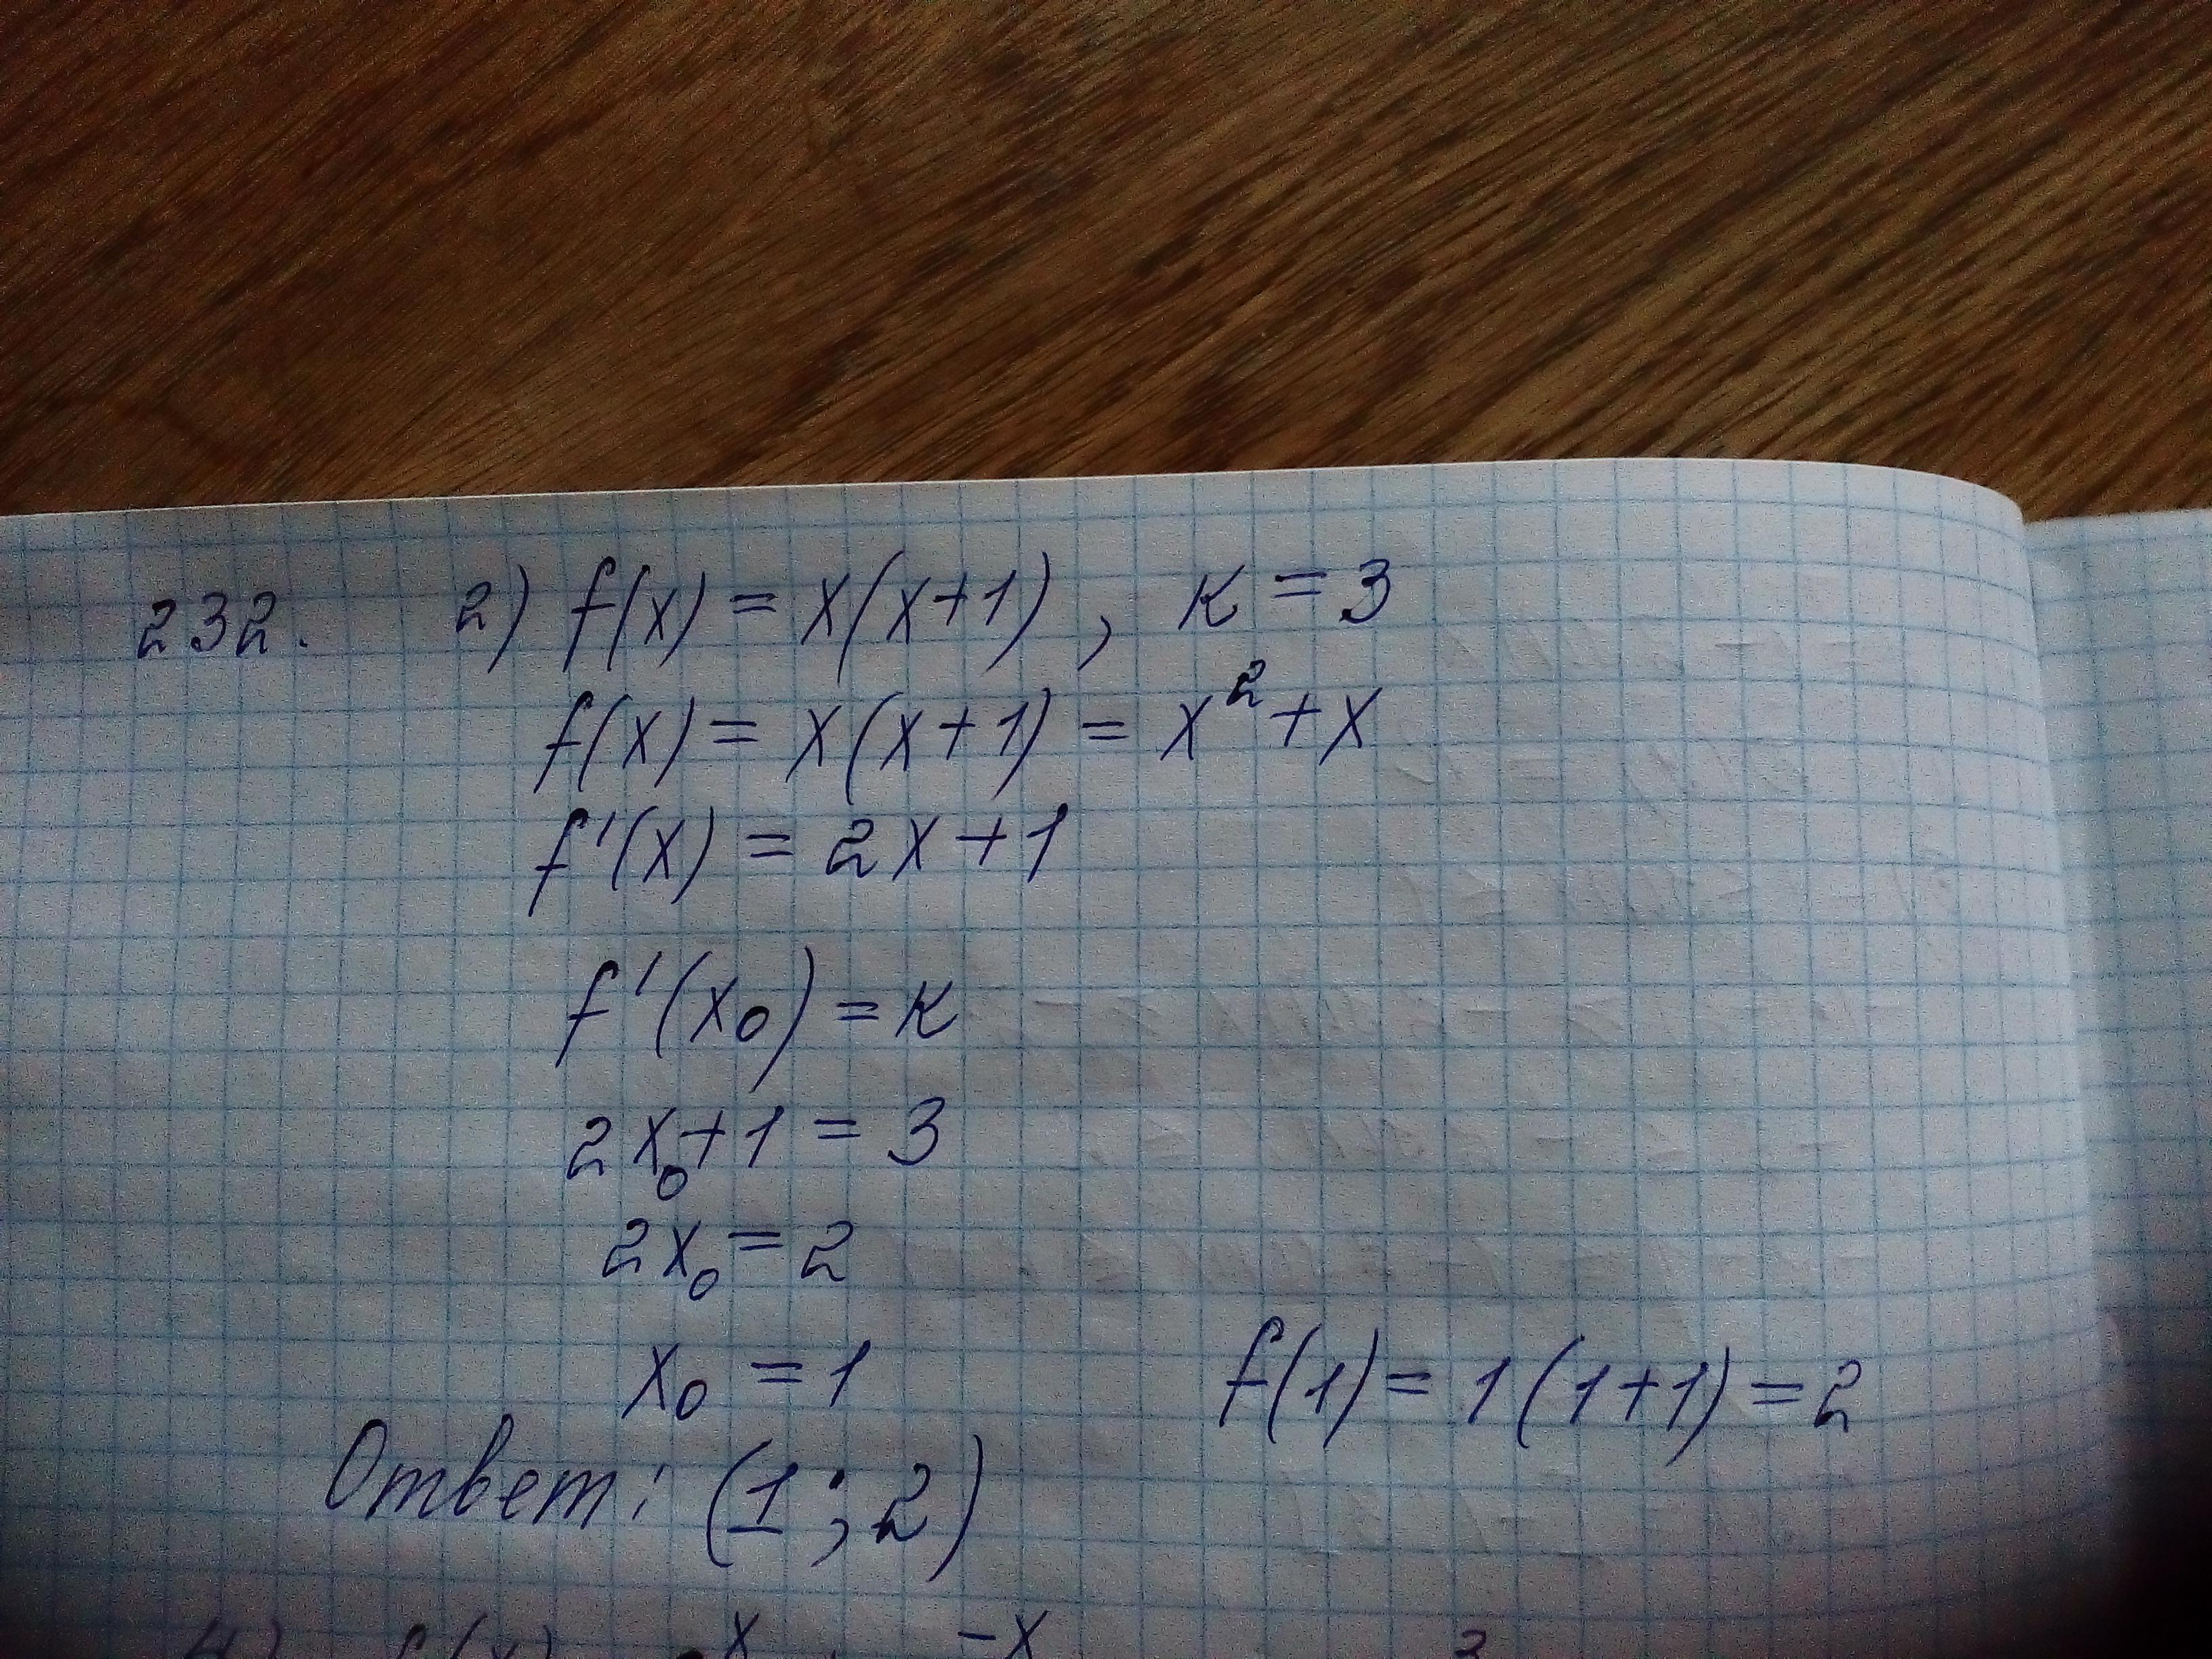 232. 2) f(x) = x(x+1), к = 3
f(x) = x(x+1) = x²+x
f'(x) = 2x+1
f'(x₀) = к
2x₀+1 = 3
2x₀ = 2
x₀ = 1 f(1) = 1(1+1) = 2
Ответ: (1; 2)